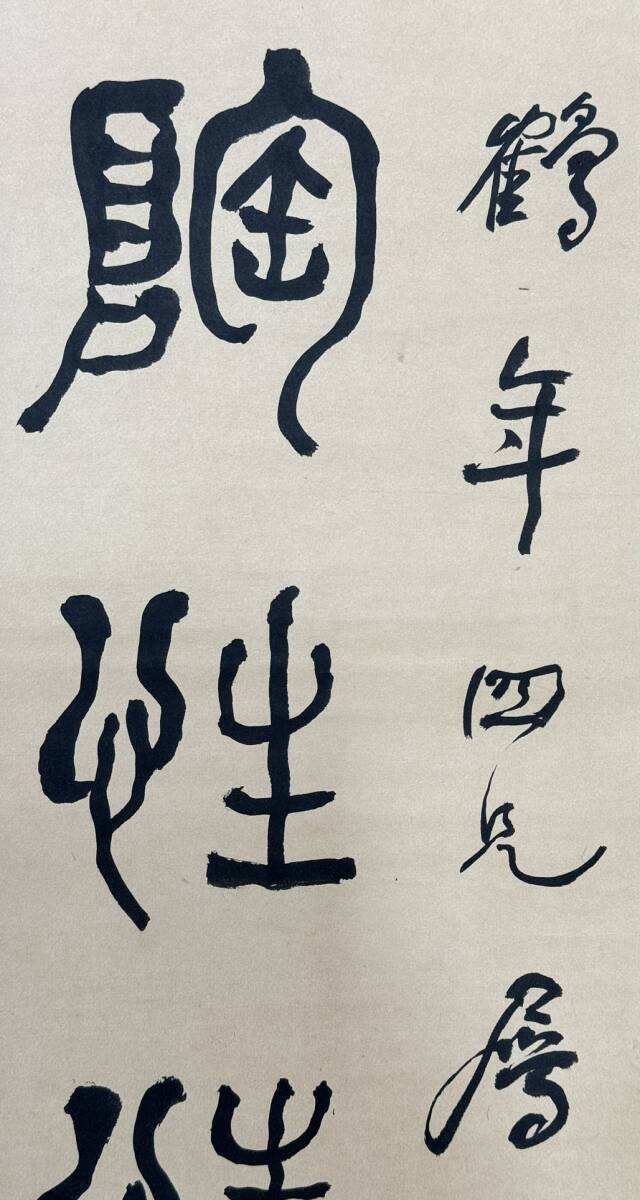 鶴年四兄屬
陶性